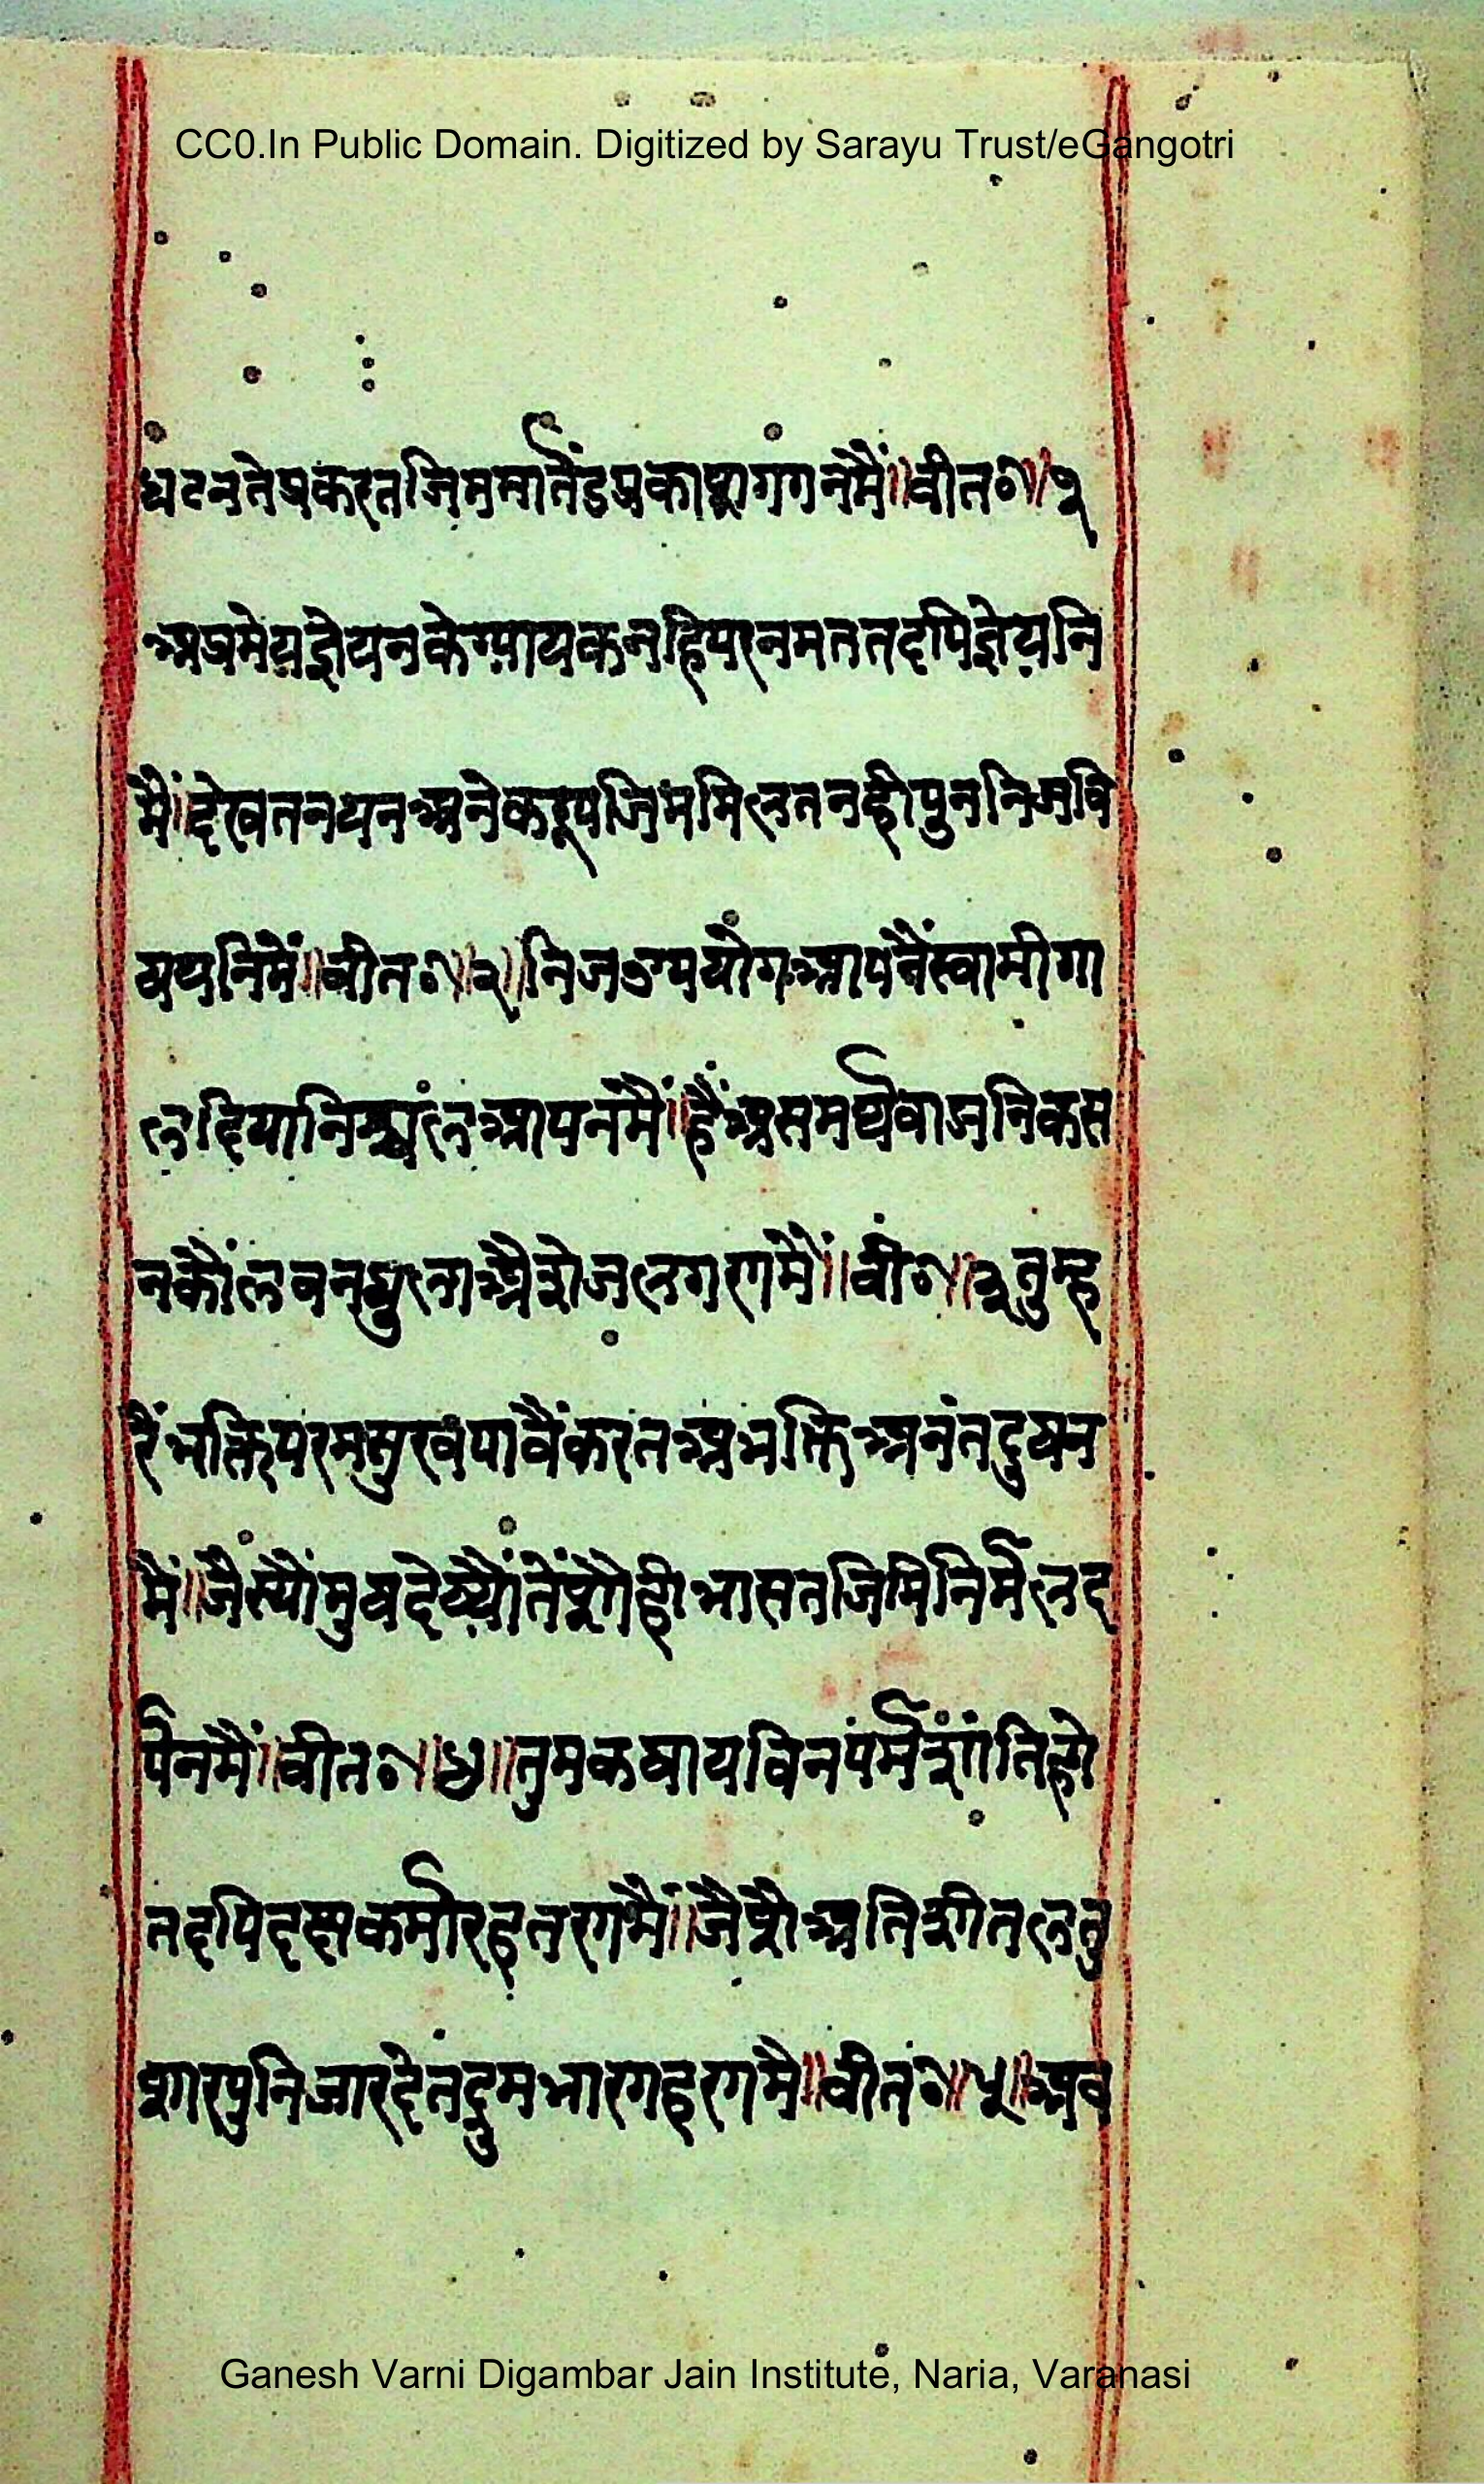 CC0.In Public Domain. Digitized by Sarayu Trust/eGangotri
घटनतेप्रकरतजिममार्तंडप्रकाशगगनमैं॥वीत०॥१
अप्रमेयज्ञेयनकेग्यायकनहिपरनमततदपिज्ञेयनि
मैं॥देखतनयनअनेकरूपजिममिलतनहीपुननिजवि
षयनिमें॥वीत०॥२॥निजउपयोगआपनैंस्वामीगा
लदियानिश्चलआपनमैं॥हैंअसमर्थवाजनिकस
नकौंलवनघुलाजैसेंजलगरणमें॥वी०॥३तुम्ह
रैंभक्तिपरमसुखपावैंकरतअभक्तिअनंतदुयन
मैं॥जैस्यौंमुषदेय्यौतेंसोहीभासतजिमिनिर्मलद
र्पनमैं॥वीत०॥४॥तुमकषायविनपर्मशांतिहो
तदपिदक्षकर्मारहतरणमैं॥जैसेअतिशीतलतु
शारपुनिजारदेतद्रुमभारगहरणमै॥वीत०॥५॥अब
Ganesh Varni Digambar Jain Institute, Naria, Varanasi